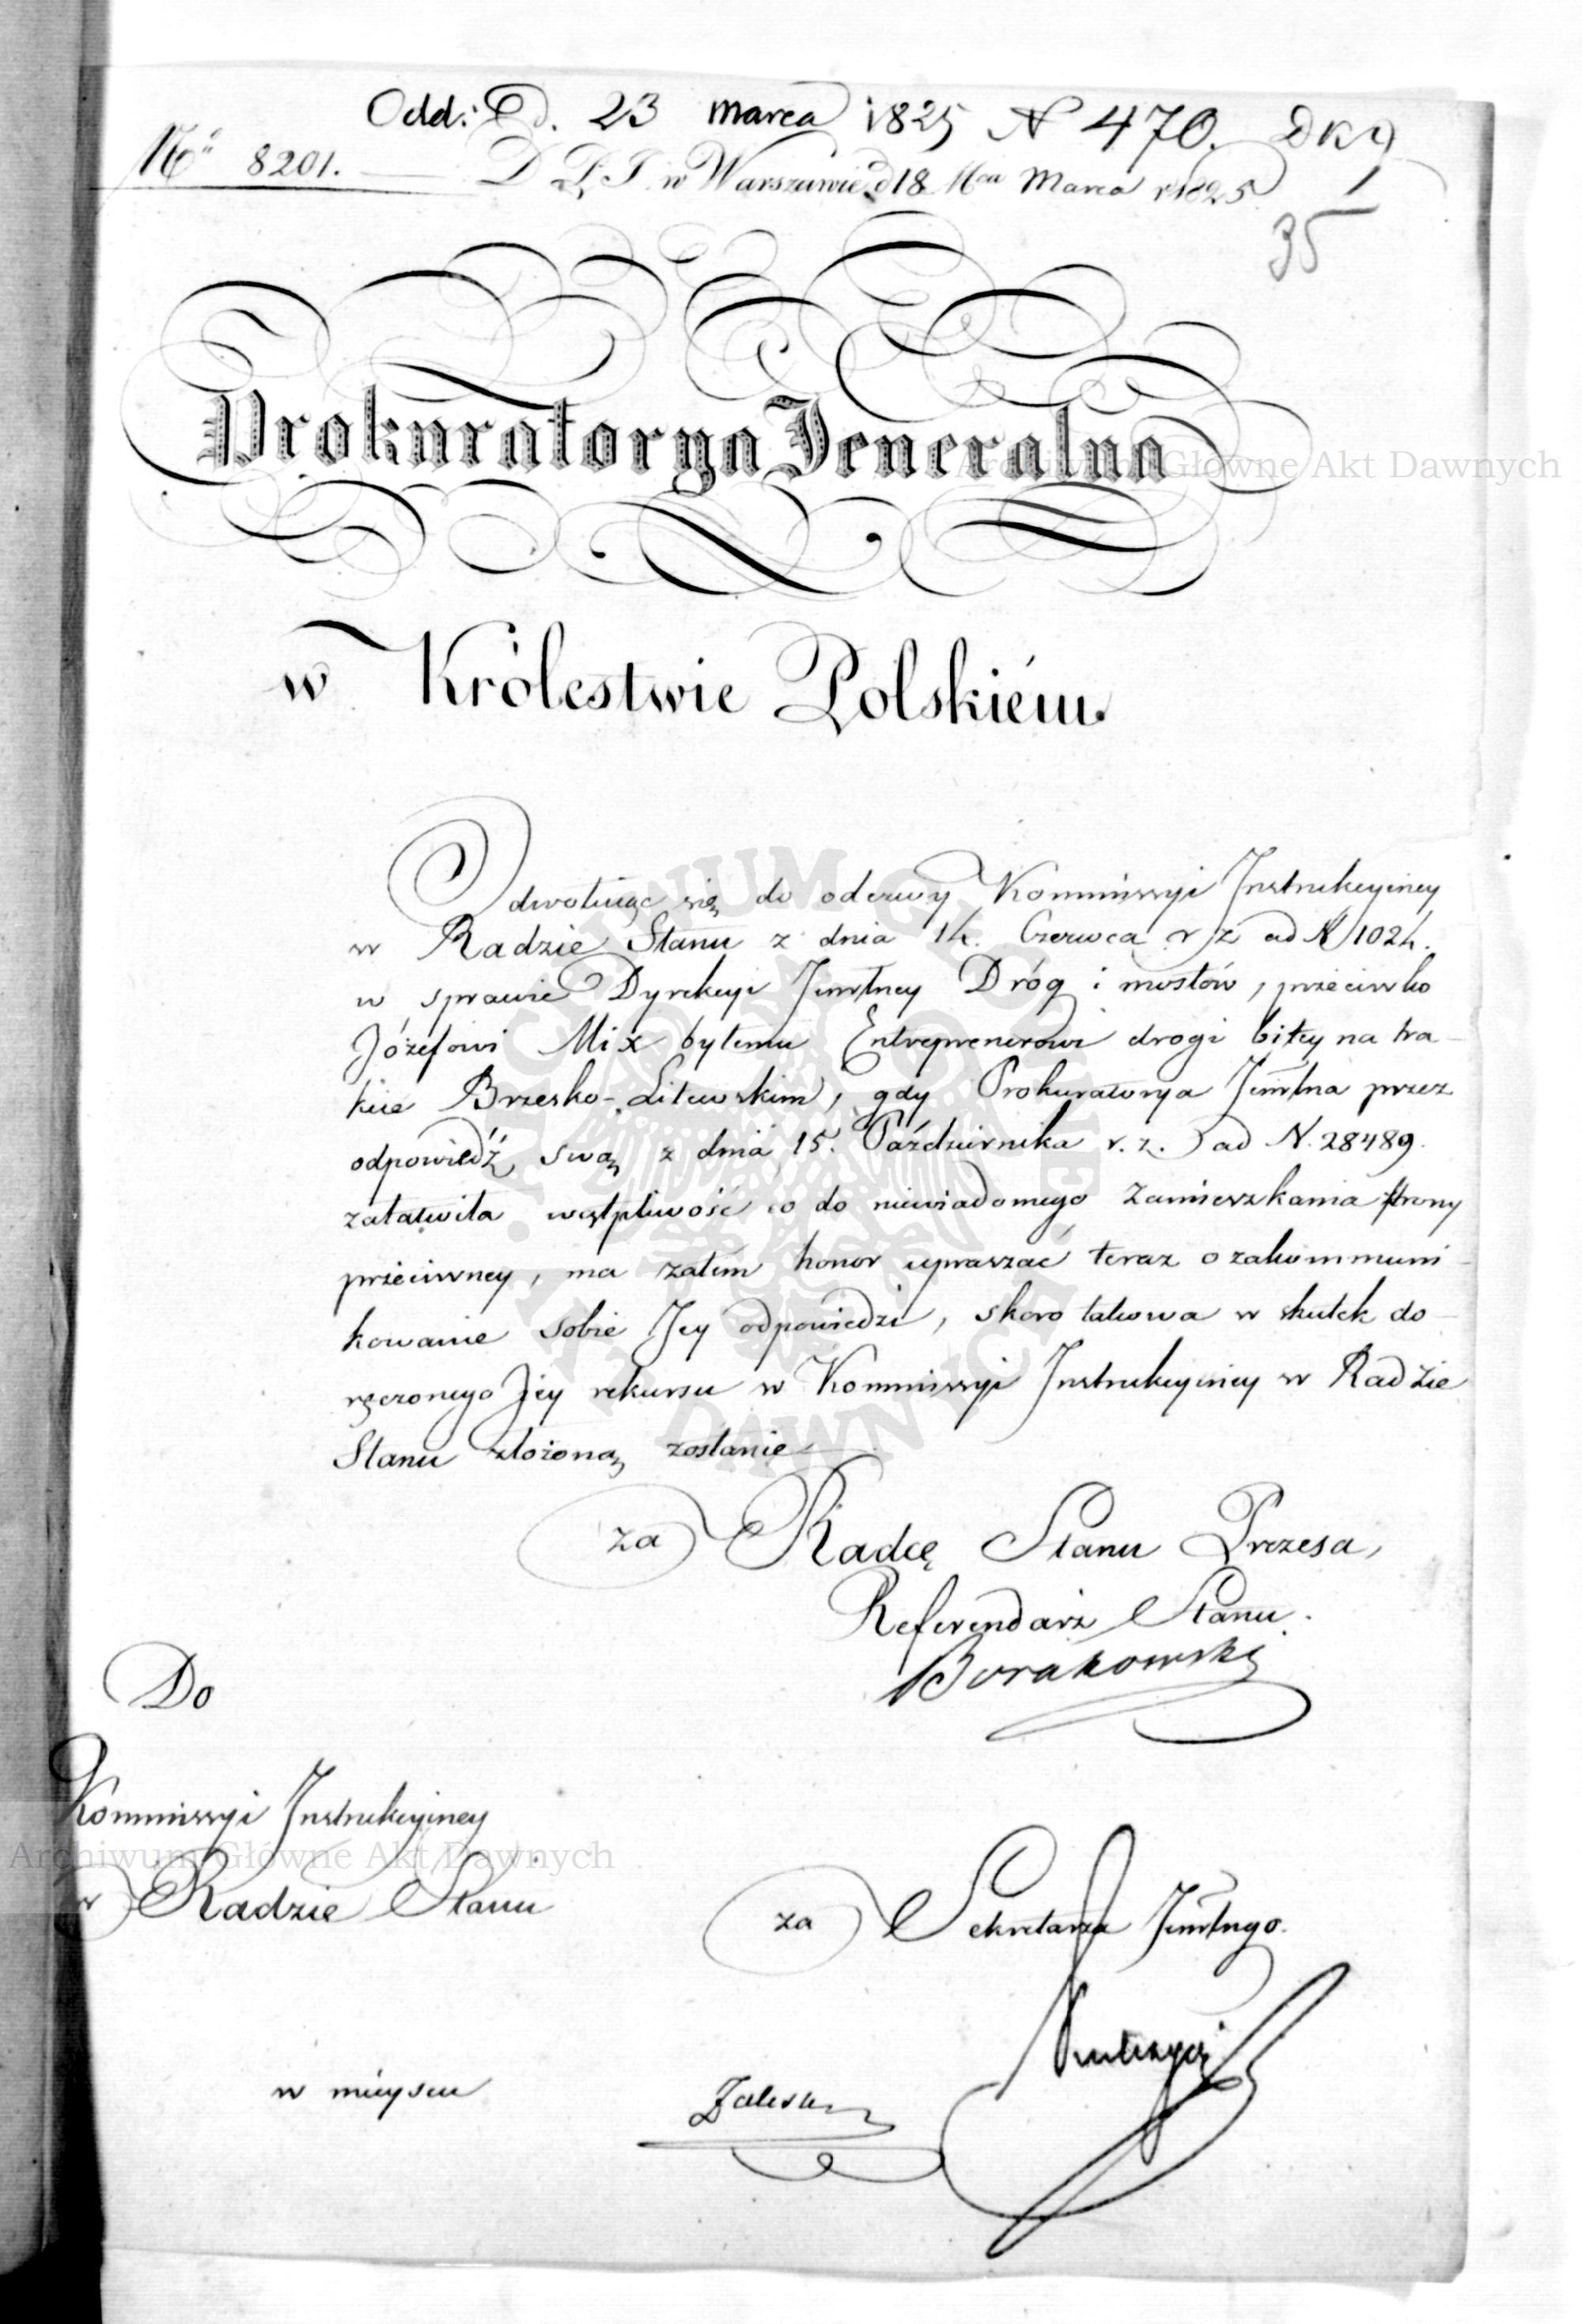 Odd: D. 23 marca 1825 N 470. DKG
Nro 8201.
D. L. J. w Warszawie d 18 Mca Marca r 1825
1
35
Prokuratorya Jeneralna
w Królestwie Polskiém.
Odwołuiąc się do odezwy Kommissyi Instrukcyiney
w Radzie Stanu z dnia 14. Czerwca r z ad N 1024.
w sprawie Dyrekcyi Jenrlney Dróg i mostów, przeciwko
Józefowi Mix byłemu Entreprenerowi drogi bitey na tra-
kcie Brzesko-Litewskim, gdy Prokuratorya Jenrlna przez
odpowiedź swą z dnia 15. Października r. z. ad N. 28489.
załatwiła wątpliwość co do niewiadomego zamieszkania strony
przeciwney, ma zatem honor upraszać teraz o zakommuni-
kowanie sobie Jey odpowiedzi, skoro takowa w skutek do-
ręczonego Jey rekursu w Kommissyi Instrukcyiney w Radzie
Stanu złożoną zostanie
za Radcę Stanu Prezesa,
Referendarz Stanu.
Borakowski
Do
Kommissyi Instrukcyiney
w Radzie Stanu
za Sekretarza Jenrlnego.
w mieyscu
Zaleski
Archiwum Główne Akt Dawnych
Archiwum Główne Akt Dawnych
ARCHIWUM GŁÓWNE AKT DAWNYCH